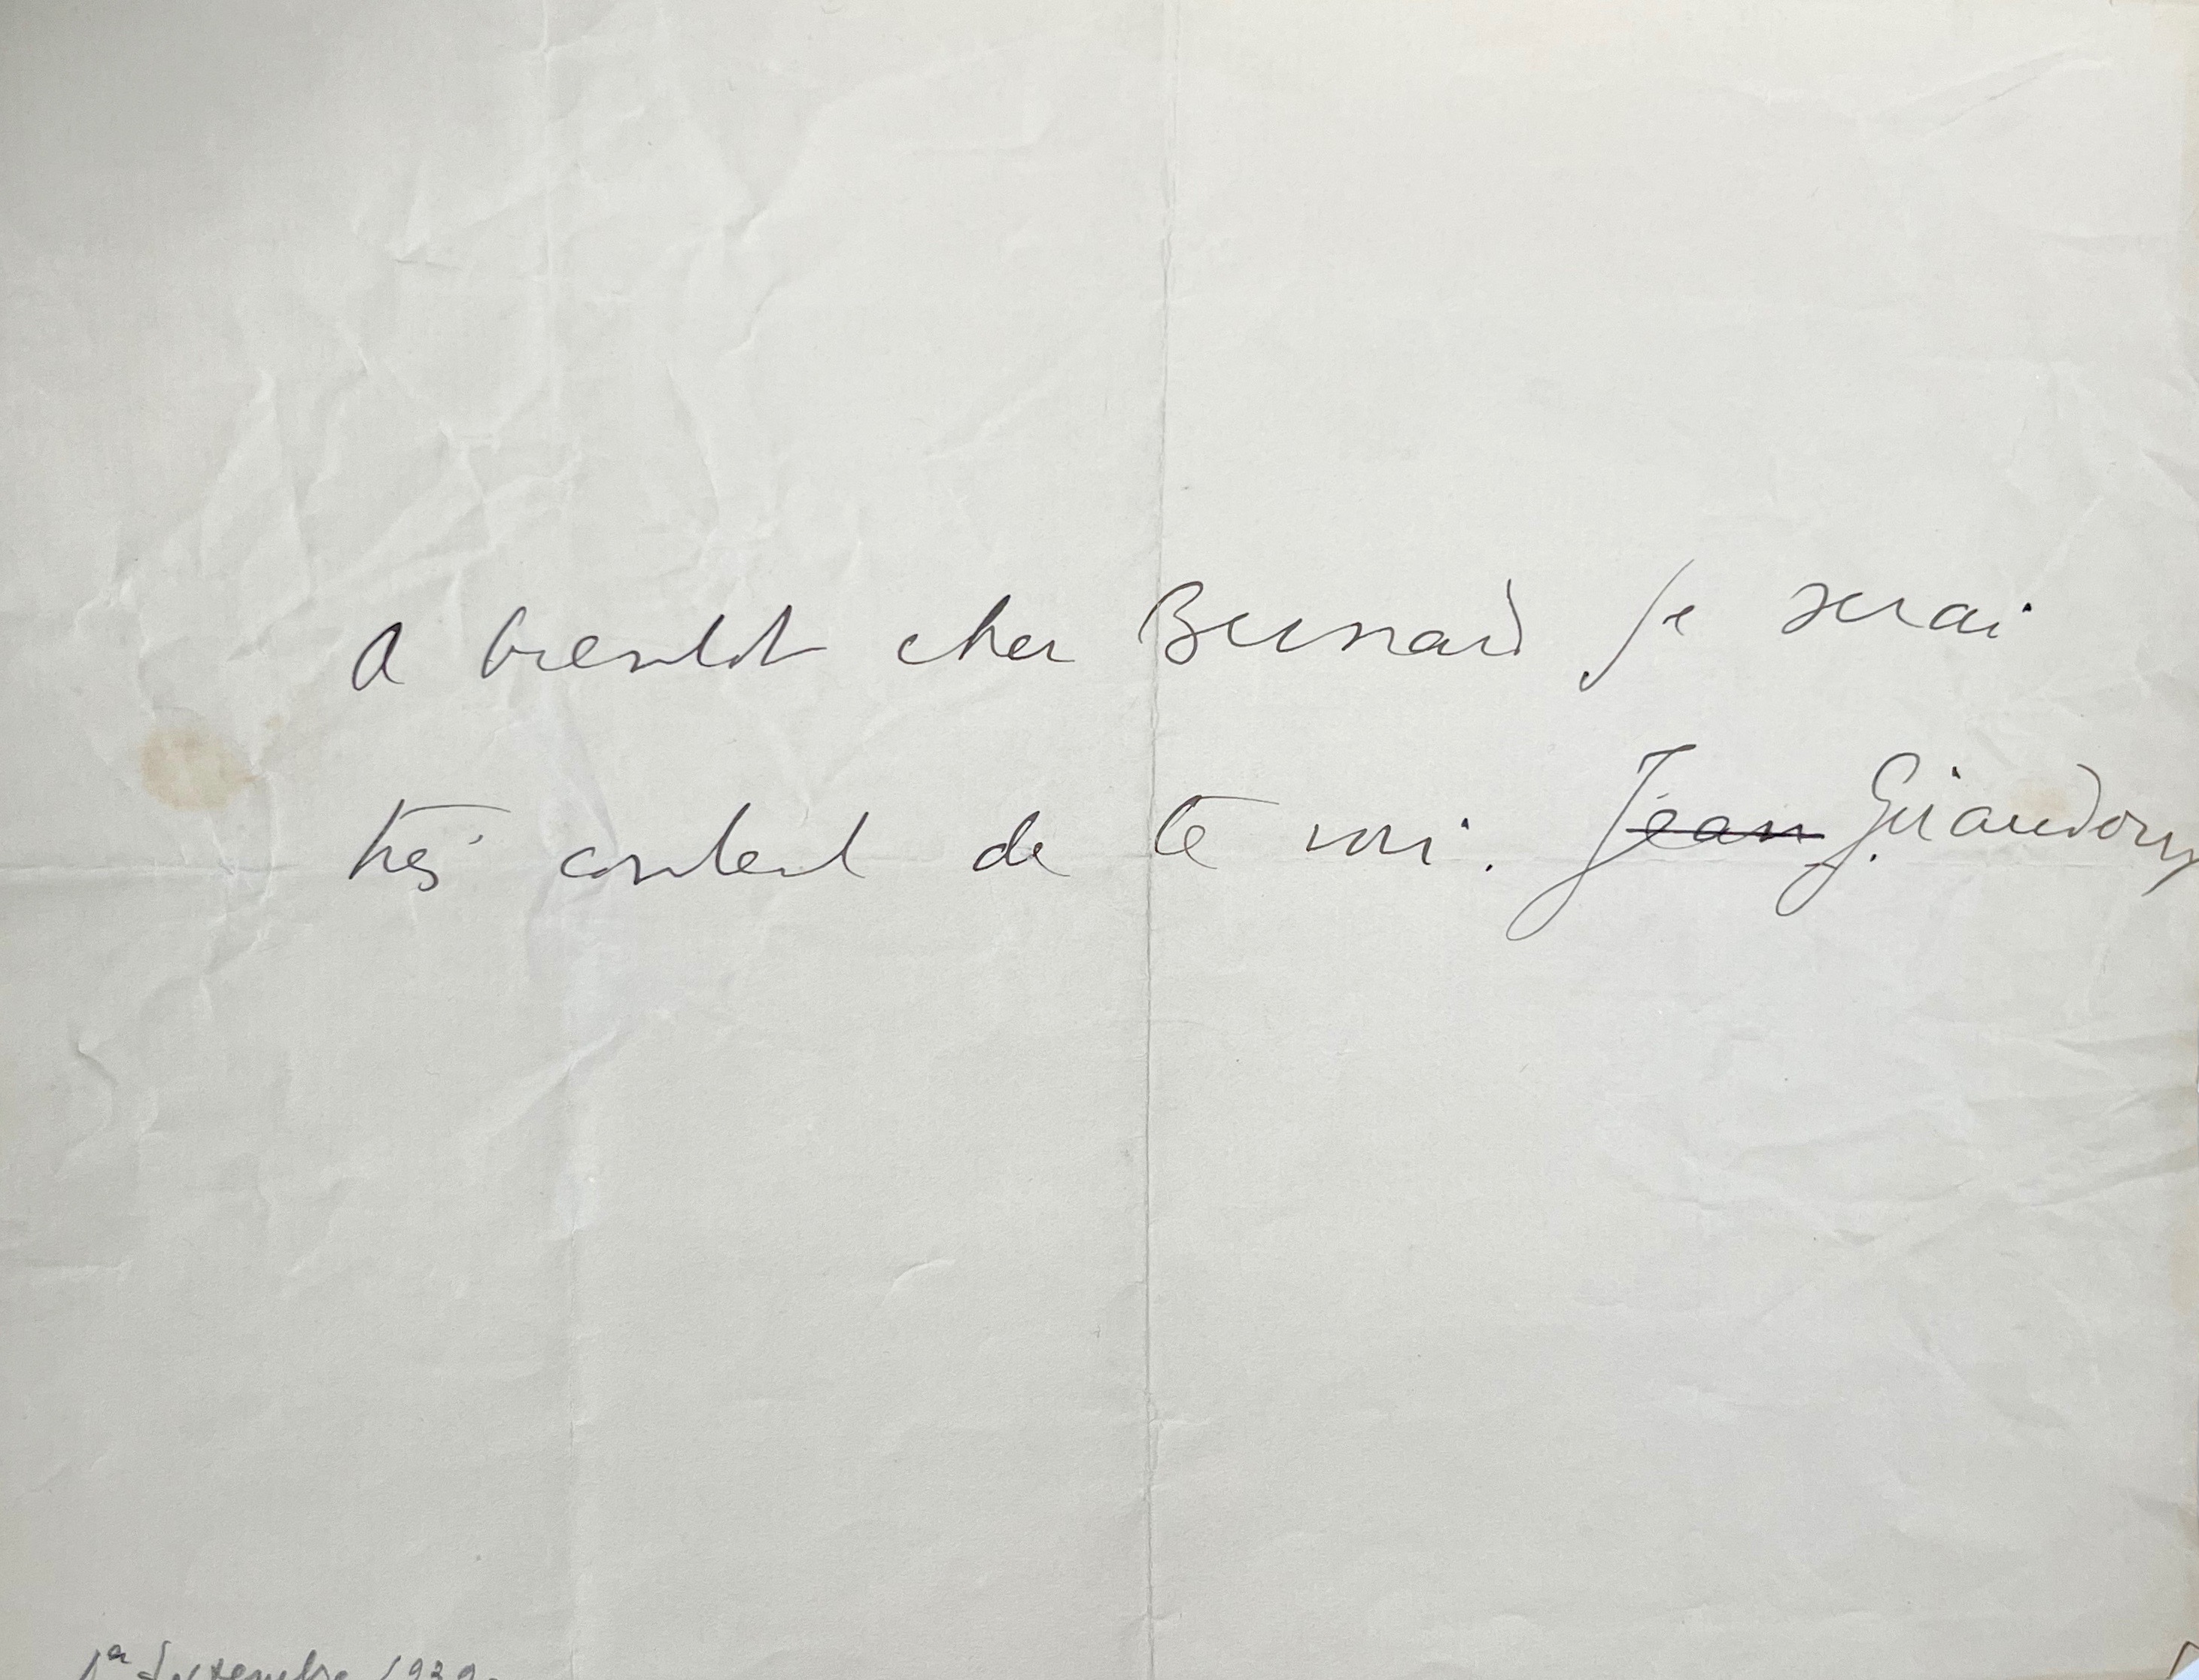 A bientôt cher Bernard Je serai
très content de te voir. Jean Giraudoux
1er Septembre 1939.